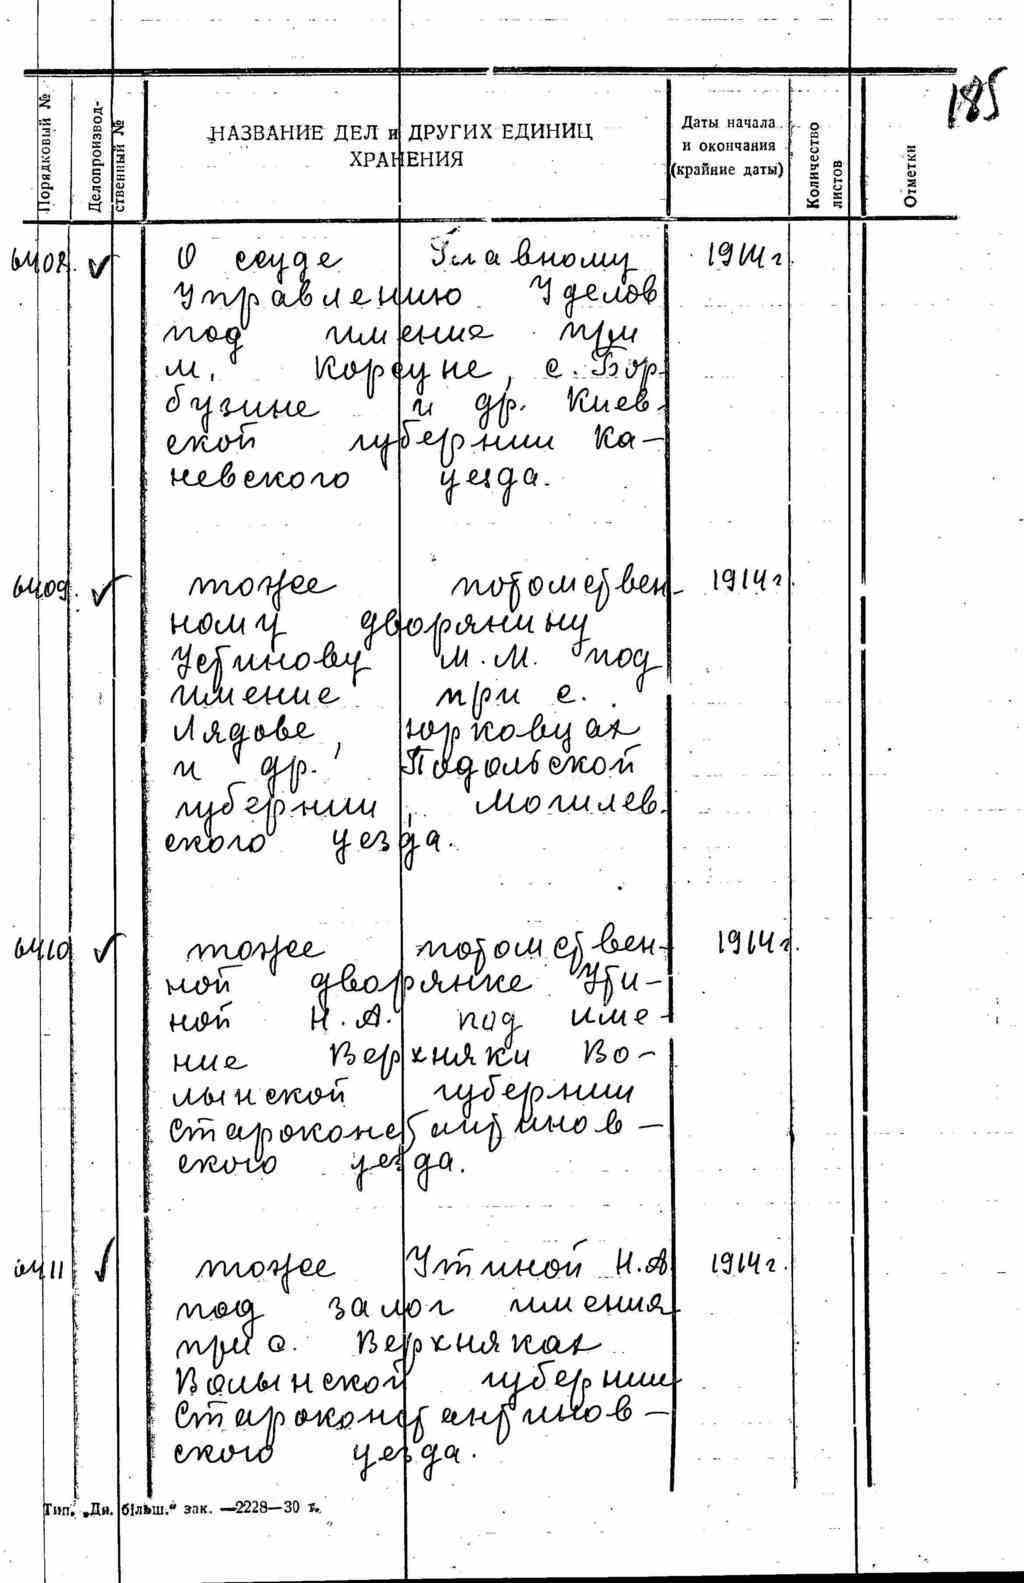 185
Порядковый №
Делопроизвод-
ственный №
НАЗВАНИЕ ДЕЛ и ДРУГИХ ЕДИНИЦ
ХРАНЕНИЯ
Даты начала
и окончания
(крайние даты)
Количество
листов
Отметки
6408. ✓ О ссуде Главному 1914 г
Управлению Уделов
под имение при
м. Корсуне, с. Бор-
бузине и др. Киев-
ской губернии Ка-
невского уезда.
6409. ✓ тоже потомствен- 1914 г
ному дворянину
Устинову М.М. под
имение при с.
Лядове, Юрковцах
и др. Подольской
губернии, Могилев-
ского уезда.
6410 ✓ тоже потомствен- 1914 г.
ной дворянке Ути-
ной Н.А. под име-
ние Верхняки Во-
лынской губернии
Староконстантинов-
ского уезда.
6411 ✓ тоже Утиной Н.А 1914 г.
под залог имения
при с. Верхняках
Волынской губернии
Староконстантинов-
ского уезда.
Тип. „Дн. більш.“ зак. —2228—30 т.